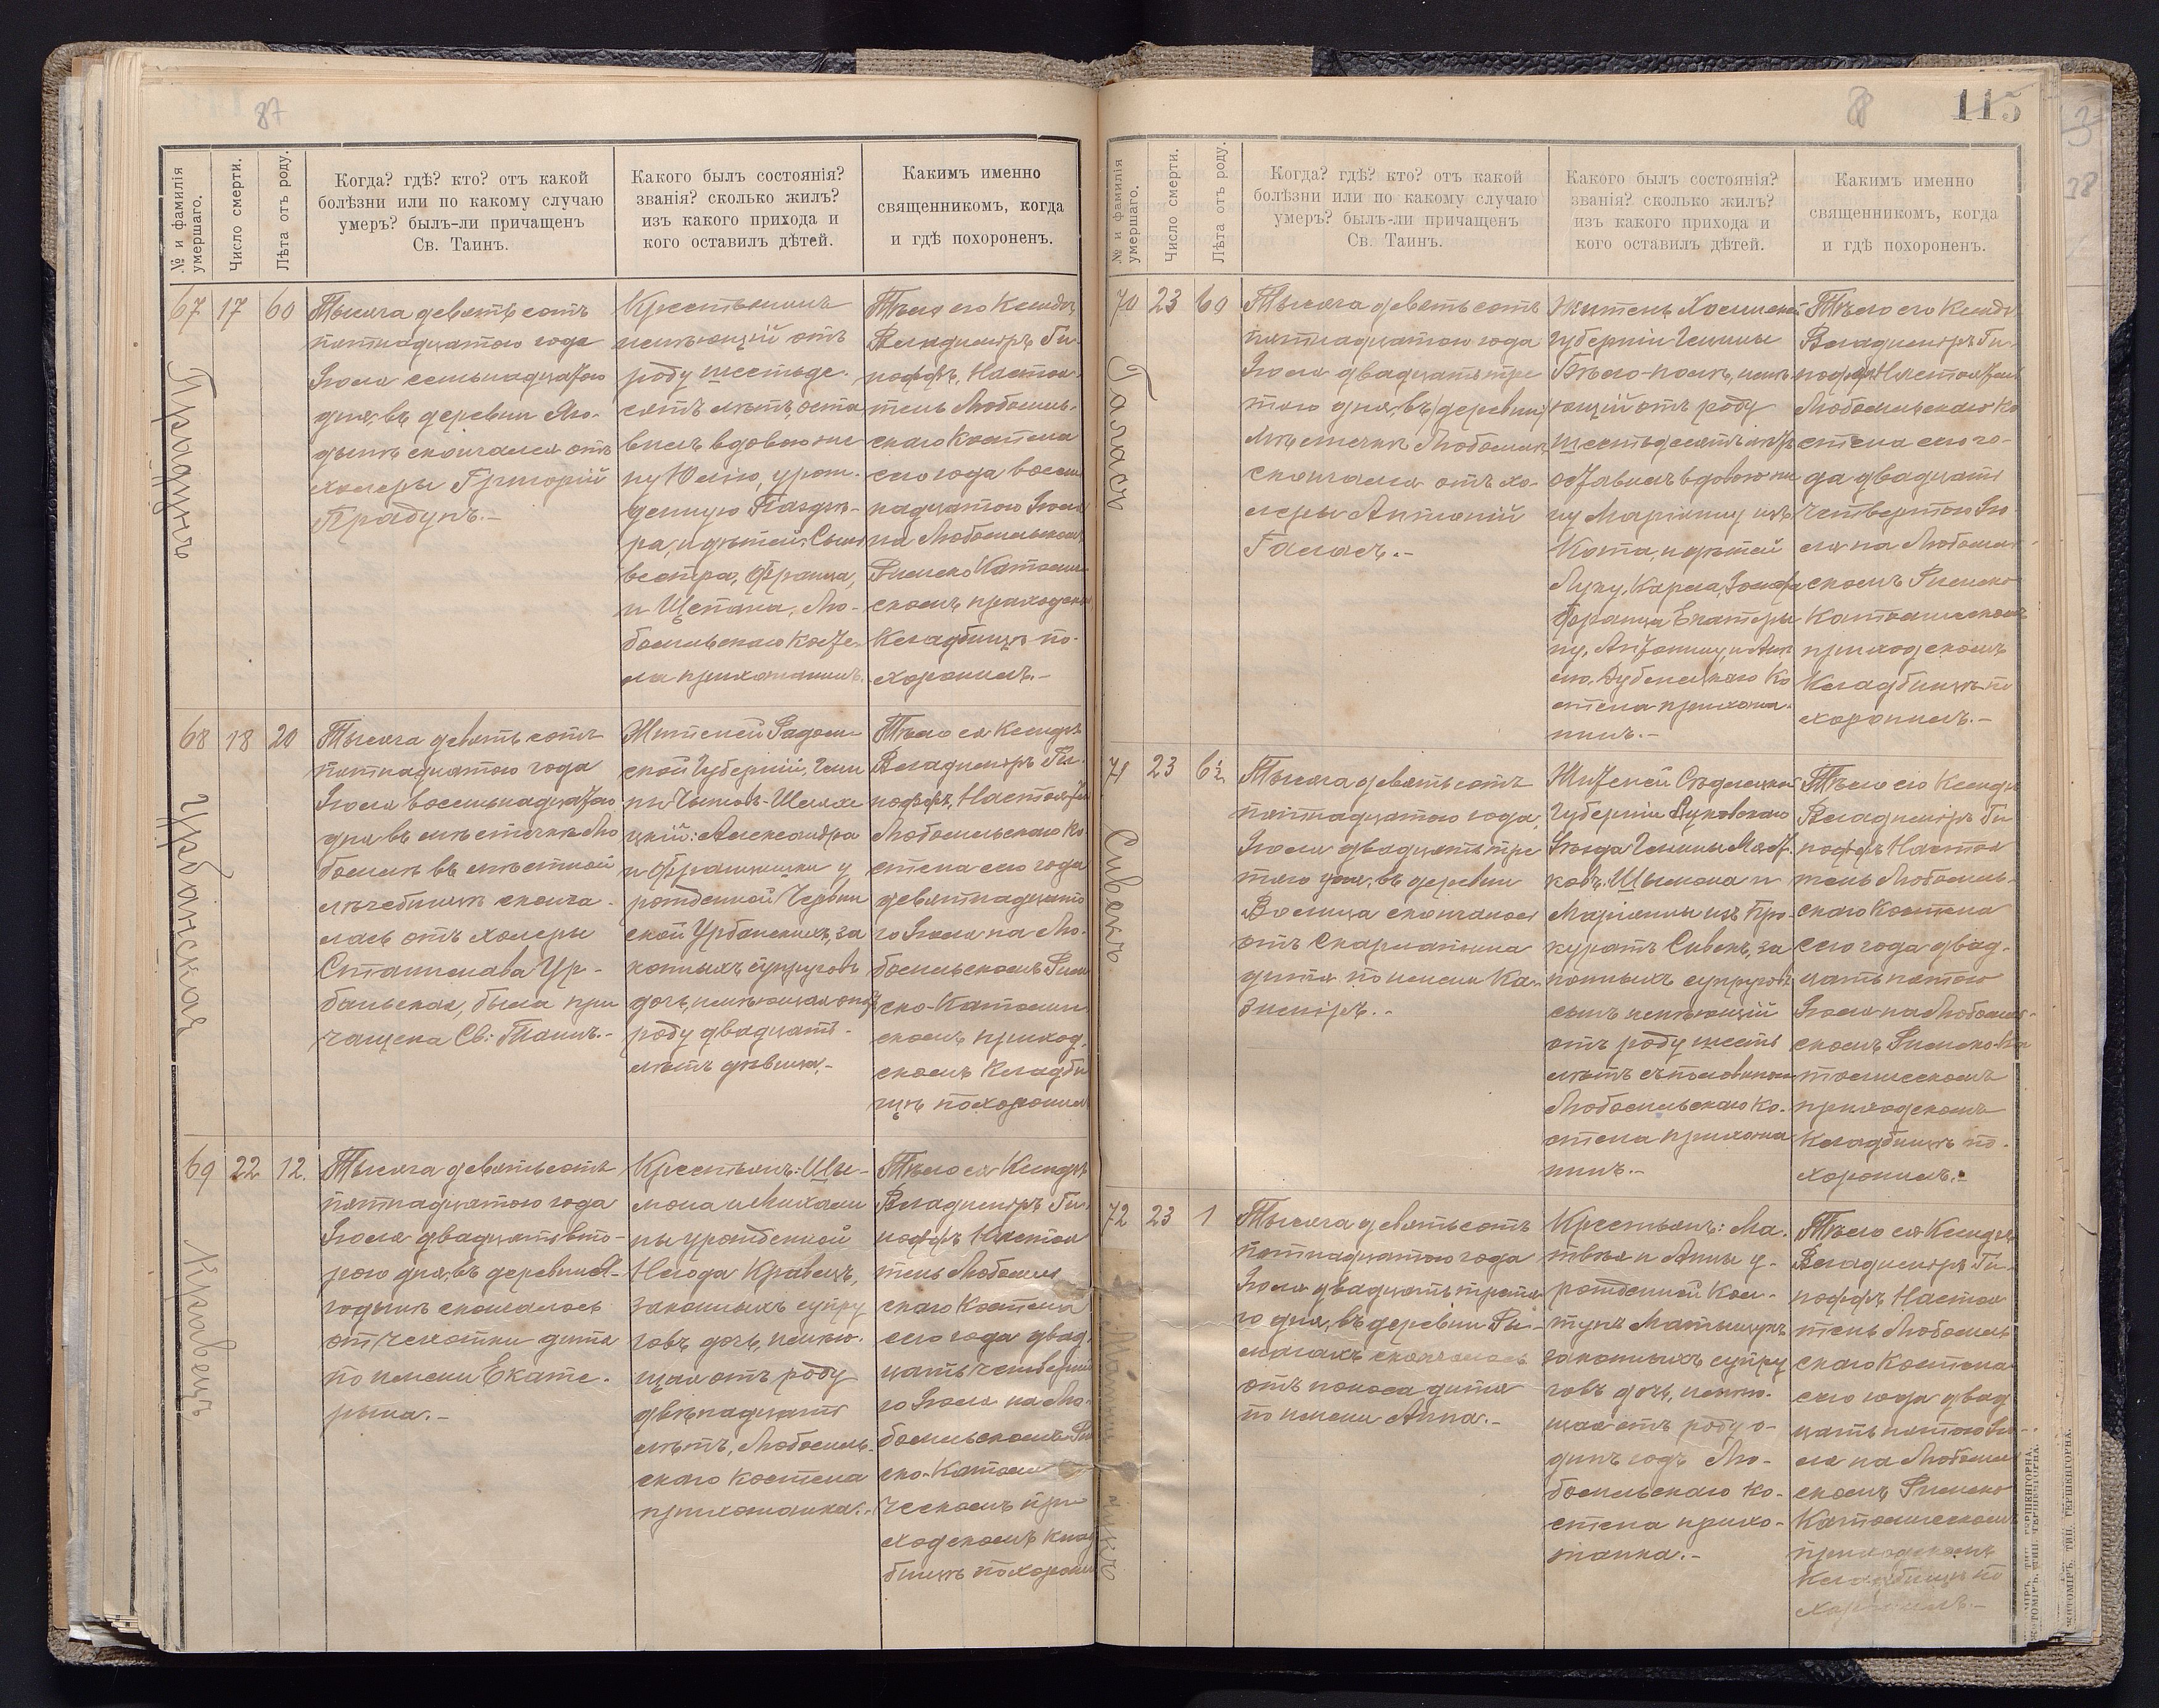 87
№ и фамилія умершаго.
Число смерти.
Лѣта отъ роду.
Когда? гдѣ? кто? отъ какой
болѣзни или по какому случаю
умеръ? былъ-ли причащенъ
Св. Таинъ.
Какого былъ состоянія?
званія? сколько жилъ?
изъ какого прихода и
кого оставилъ дѣтей.
Какимъ именно
священникомъ, когда
и гдѣ похороненъ.
67 17 60
Прадунъ
Тысяча девятьсотъ
пятнадцатого года
Іюля семьнадцатого
дня, въ деревни
скончался отъ
холеры Григорій
Прадунъ.-
Крестьянинъ
имѣющій отъ
роду шестьде-
сятъ лѣтъ, оста
вилъ вдовою же
ну Юлію, урож-
денную
ра, и дѣтей: Силь
вестра, Франца,
и Щепана, Лю-
бомльскаго косте-
ла прихожанинъ.
Тѣло его Ксендзъ
Владиміръ Ги-
поффъ, Настоя-
тель Любомль-
скаго Костела
сего года восем
надцатого Іюля
на Любомльскомъ
Римско Католи
скомъ приходском
Кладбищѣ по-
хоронилъ.-
68 18 20
Урбанская
Тысяча девятьсотъ
пятнадцатого года
Іюля восемьнадцатаго
дня въ мѣстечкѣ Лю
бомлѣ въ мѣстной
лѣчебницѣ сконча-
лась отъ холеры
Станислава Ур-
баньская, была при
чащена Св: Таинъ.-
Жителей Радом
ской Губерніи, Гми
ны
Александра
и Францишки у
рожденной Червин
ской Урбанскихъ, за
конныхъ супруговъ
дочь, имѣющая отъ
роду двадцать
лѣтъ дѣвица.-
Тѣло ея Ксендзъ
Владиміръ Ги-
поффъ, Настоятель
Любомльскаго Ко
стела сего года
девятнадцато
го Іюля на Лю-
бомльскомъ Рим
ско-Католи
скомъ приход
скомъ Кладби
щѣ похоронил
69 22 12.
Кравецъ
Тысяча девятьсотъ
пятнадцатого года
Іюля двадцать вто-
рого дня, въ деревни
скончалось
отъ чехотки дитя
по имени Екате-
рына.-
Крестьянъ: Шы-
мона и Михали
ны урожденной
Негода Кравецъ,
законныхъ супру
говъ дочь, имѣю-
щая отъ роду
двѣнадцать
лѣтъ, Любомль-
скаго Костела
прихожанка.-
Тѣло ея Ксендзъ
Владиміръ Ги-
поффъ Настоя
тель Любомль
скаго Костела
сего года двад
цать четверта
го Іюля на Лю-
бомльскомъ Рим
ско-Католи
ческомъ при
ходскомъ клад
бищѣ похорони
8
115
№ и фамилія умершаго.
Число смерти.
Лѣта отъ роду.
Когда? гдѣ? кто? отъ какой
болѣзни или по какому случаю
умеръ? былъ-ли причащенъ
Св. Таинъ.
Какого былъ состоянія?
званія? сколько жилъ?
изъ какого прихода и
кого оставилъ дѣтей.
Какимъ именно
священникомъ, когда
и гдѣ похороненъ.
70 23 60
Галасъ
Тысяча девятьсотъ
пятнадцатого года
Іюля двадцать тре
того дня, въ деревни
мѣстечкѣ Любомлѣ
скончался отъ хо-
леры Антоній
Галасъ.-
Житель Холмской
Губерніи Гмины
имѣ
ющій отъ роду
шестьдесятъ лѣтъ
оставилъ вдовою же
ну Маріянну изъ
Кота, и дѣтей
Луку, Кароля, Іозефа
Франца Екатеры
ну, Антонину, и
Ко
стела прихожа-
нинъ.-
Тѣло его Ксендзъ
Владиміръ Ги-
поффъ Настоятель
Любомльскаго Ко
стела сего го-
да двадцать
четвертого Ію
ля на Любомль
скомъ Римско
Католическомъ
приходскомъ
Кладбищѣ по
хоронилъ.-
71 23 6½
Сивекъ
Тысяча девятьсотъ
пятнадцатого года,
Іюля двадцать тре
того дня, въ деревни
Волица скончалось
отъ Скарлатина
дитя по имени Ка-
зиміръ.-
Жителей Сѣдлецкой
Губерніи Луковскаго
Уѣзда Гмины
Шымона и
Маріянны изъ Про-
куратъ Сивекъ, за
конныхъ супруговъ
сынъ имѣющій
отъ роду шесть
лѣтъ съ половиною
Любомльскаго Ко-
стела прихожа
нинъ.-
Тѣло его Ксендзъ
Владиміръ Ги
поффъ Настоя
тель Любомль-
скаго Костела
сего года двад-
цать пятого
Іюля на Любомль-
скомъ Римско-Ка
толическомъ
приходскомъ
Кладбищѣ по-
хоронилъ.-
72 23 1
Тысяча девятьсотъ
пятнадцатого года
Іюля двадцать третя
го дня, въ деревни Ры-
мачахъ скончалось
отъ поноса дитя
по имени Анна.-
Крестьянъ: Ма-
твѣя и Анны у-
рожденной Кол-
тунъ
законныхъ супру
говъ дочь, имѣю-
щая отъ роду о-
динъ годъ Лю-
бомльскаго ко-
стела прихо-
жанка.-
Тѣло ея Ксендзъ
Владиміръ Ги-
поффъ Настоя
тель Любомль
скаго Костела
сего года двад
цать пятого Ію-
ля на Любомль
скомъ Римско
Католическомъ
приходскомъ
Кладбищѣ по
хоронилъ.-
ЖИТОМІРЪ. ТИП. ГЕРШЕНГОРНА.